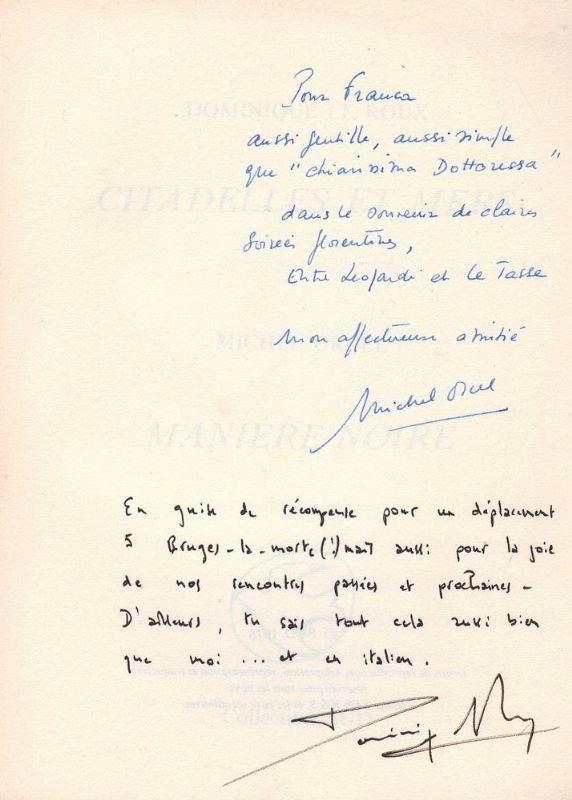 Pour Franca
aussi gentille, aussi simple
que "chiarissima Dottoressa"
dans le souvenir de claires
soirées florentines,
Entre Leopardi et Le Tasse
Mon affectueuse amitié
Michel Orcel
En guise de récompense pour un déplacement
à Bruges-la-morte (!) mais aussi pour la joie
de nos rencontres passées et prochaines -
D'ailleurs, tu sais tout cela aussi bien
que moi ... et en italien.
DOMINIQUE LE ROUX
CITADELLES ET MERS
MICHEL ORCEL
MANIERE NOIRE